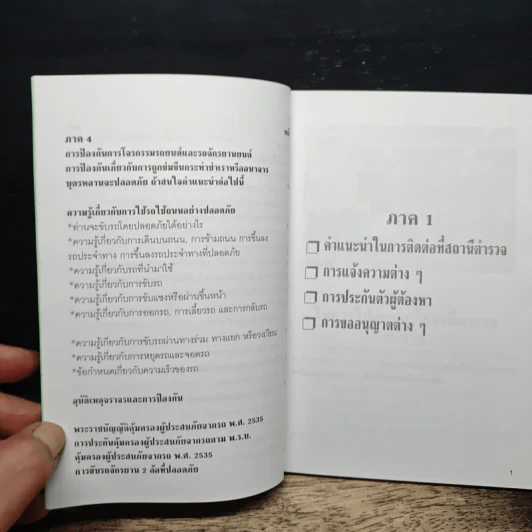 ภาค 4
การป้องกันการโจรกรรมรถยนต์และรถจักรยานยนต์
การป้องกันเกี่ยวกับการถูกข่มขืนกระทำชำเราหรืออนาจาร
บุตรหลานจะปลอดภัย ถ้าสนใจคำแนะนำต่อไปนี้
ความรู้เกี่ยวกับการใช้รถใช้ถนนอย่างปลอดภัย
*ท่านจะขับรถโดยปลอดภัยได้อย่างไร
*ความรู้เกี่ยวกับการเดินบนถนน, การข้ามถนน การขึ้นลง
รถประจำทาง การขึ้นลงรถประจำทางที่ปลอดภัย
*ความรู้เกี่ยวกับรถที่นำมาใช้
*ความรู้เกี่ยวกับการขับรถ
*ความรู้เกี่ยวกับการขับแซงหรือผ่านขึ้นหน้า
*ความรู้เกี่ยวกับการออกรถ, การเลี้ยวรถ และการกลับรถ
*ความรู้เกี่ยวกับการขับรถผ่านทางร่วม ทางแยก หรือวงเวียน
*ความรู้เกี่ยวกับการหยุดรถและจอดรถ
*ข้อกำหนดเกี่ยวกับความเร็วของรถ
อุบัติเหตุจราจรและการป้องกัน
พระราชบัญญัติคุ้มครองผู้ประสบภัยจากรถ พ.ศ. 2535
การประกันคุ้มครองผู้ประสบภัยจากรถตาม พ.ร.บ.
คุ้มครองผู้ประสบภัยจากรถ พ.ศ. 2535
การขับรถจักรยาน 2 ล้อที่ปลอดภัย
ภาค 1
❐ คำแนะนำในการติดต่อที่สถานีตำรวจ
❐ การแจ้งความต่าง ๆ
❐ การประกันตัวผู้ต้องหา
❐ การขออนุญาตต่าง ๆ
1